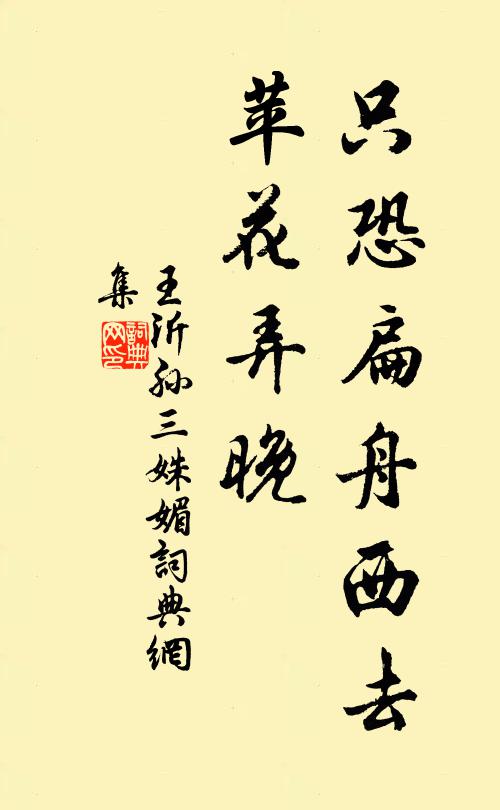 只恐扁舟西去
苹花弄晚
王沂孙三姝媚詞典網
集
詞典
网印